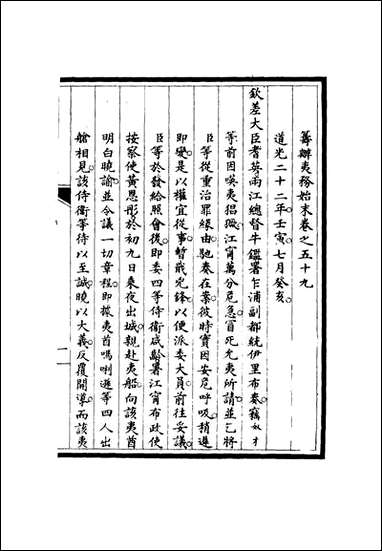 籌辦夷務始末卷之五十九
道光二十二年壬寅。七月癸亥。
欽差大臣耆英兩江總督牛鑑署乍浦副都統伊里布奏竊奴才
等前因㗎夷猖獗。江寧萬分危急。冒死允夷所請。並乞將
臣等從重治罪緣由。馳奏在案。彼時實因安危呼吸。稍遲
即變。是以權宜從事。暫戢兇鋒。以便派委大員。前往妥議。
臣等於發給照會後。即委四等侍衛咸齡署江寧布政使
按察使黃恩彤。於初九日乘夜出城。親赴夷船。向該夷酋
明白曉諭。並令議一切章程。即據夷酋嗎喇遜等四人出
艙相見。該侍衛等待以至誠。曉以大義。反覆開導。而該夷
一